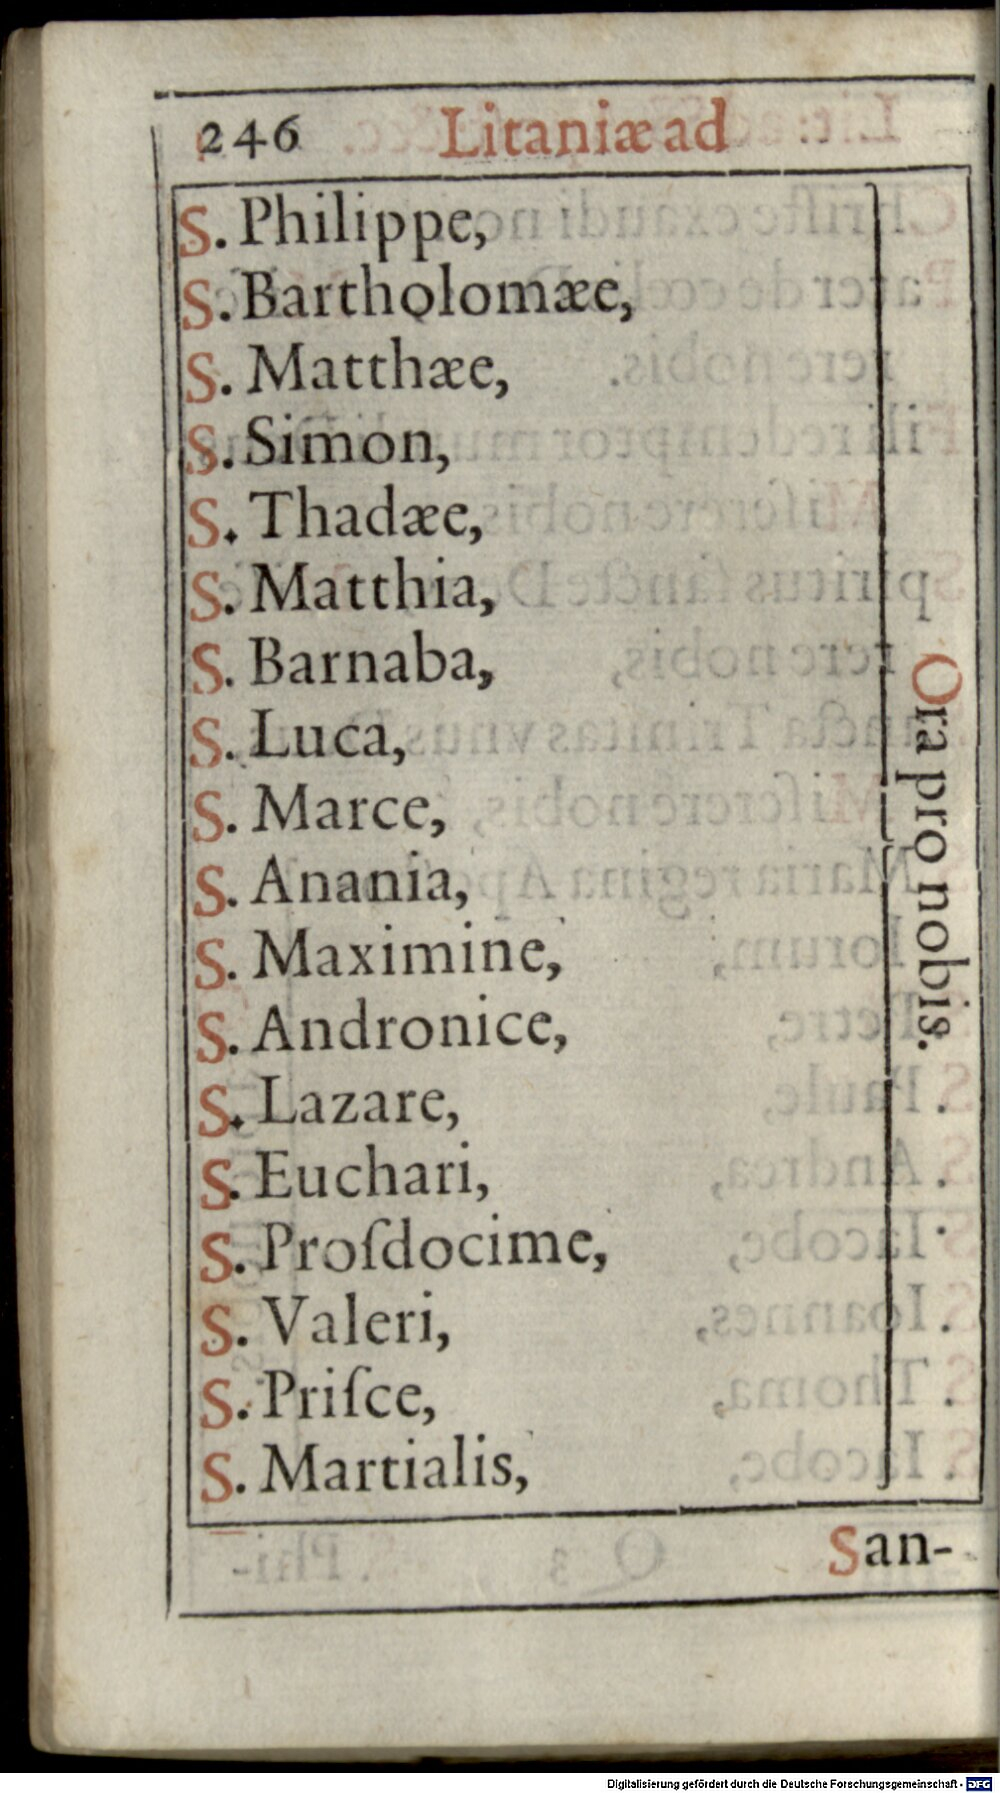 246 Litaniæ ad
S. Philippe,
S. Bartholomæe,
S. Matthæe,
S. Simon,
S. Thadæe,
S. Matthia,
S. Barnaba,
S. Luca,
S. Marce,
S. Anania,
S. Maximine,
S. Andronice,
S. Lazare,
S. Euchari,
S. Proſdocime,
S. Valeri,
S. Priſce,
S. Martialis,
Ora pro nobis.
San-
Digitalisierung gefördert durch die Deutsche Forschungsgemeinschaft - DFG